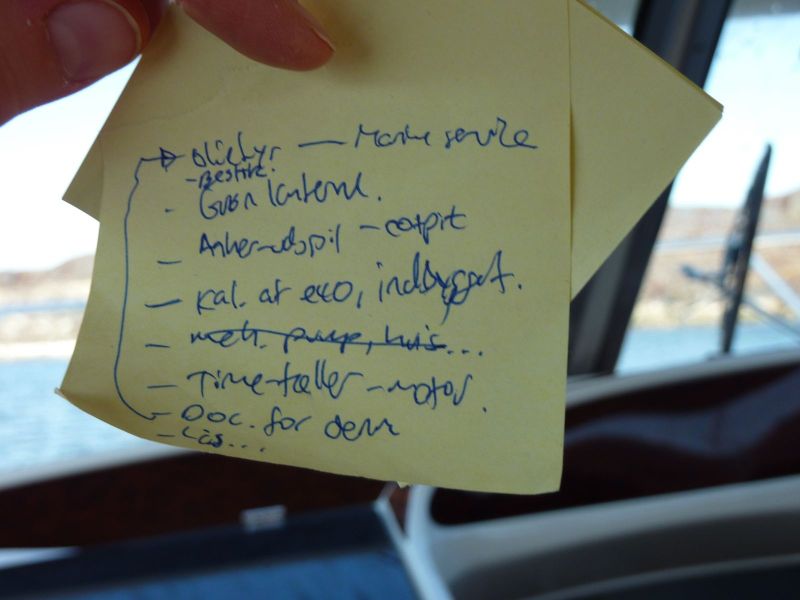 oliefyr — Marine service
- bestik.
- Grøn lanterne.
- Anker-udspil - cotpit
- Kal. af eko, indbygget.
- mek. pumpe, hvis...
- Time-tæller - motor.
- Doc. for denne